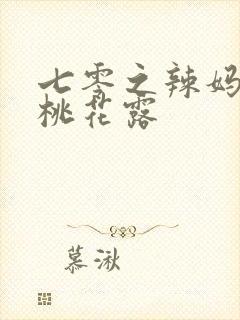 七零之辣妈
桃花露
慕湫